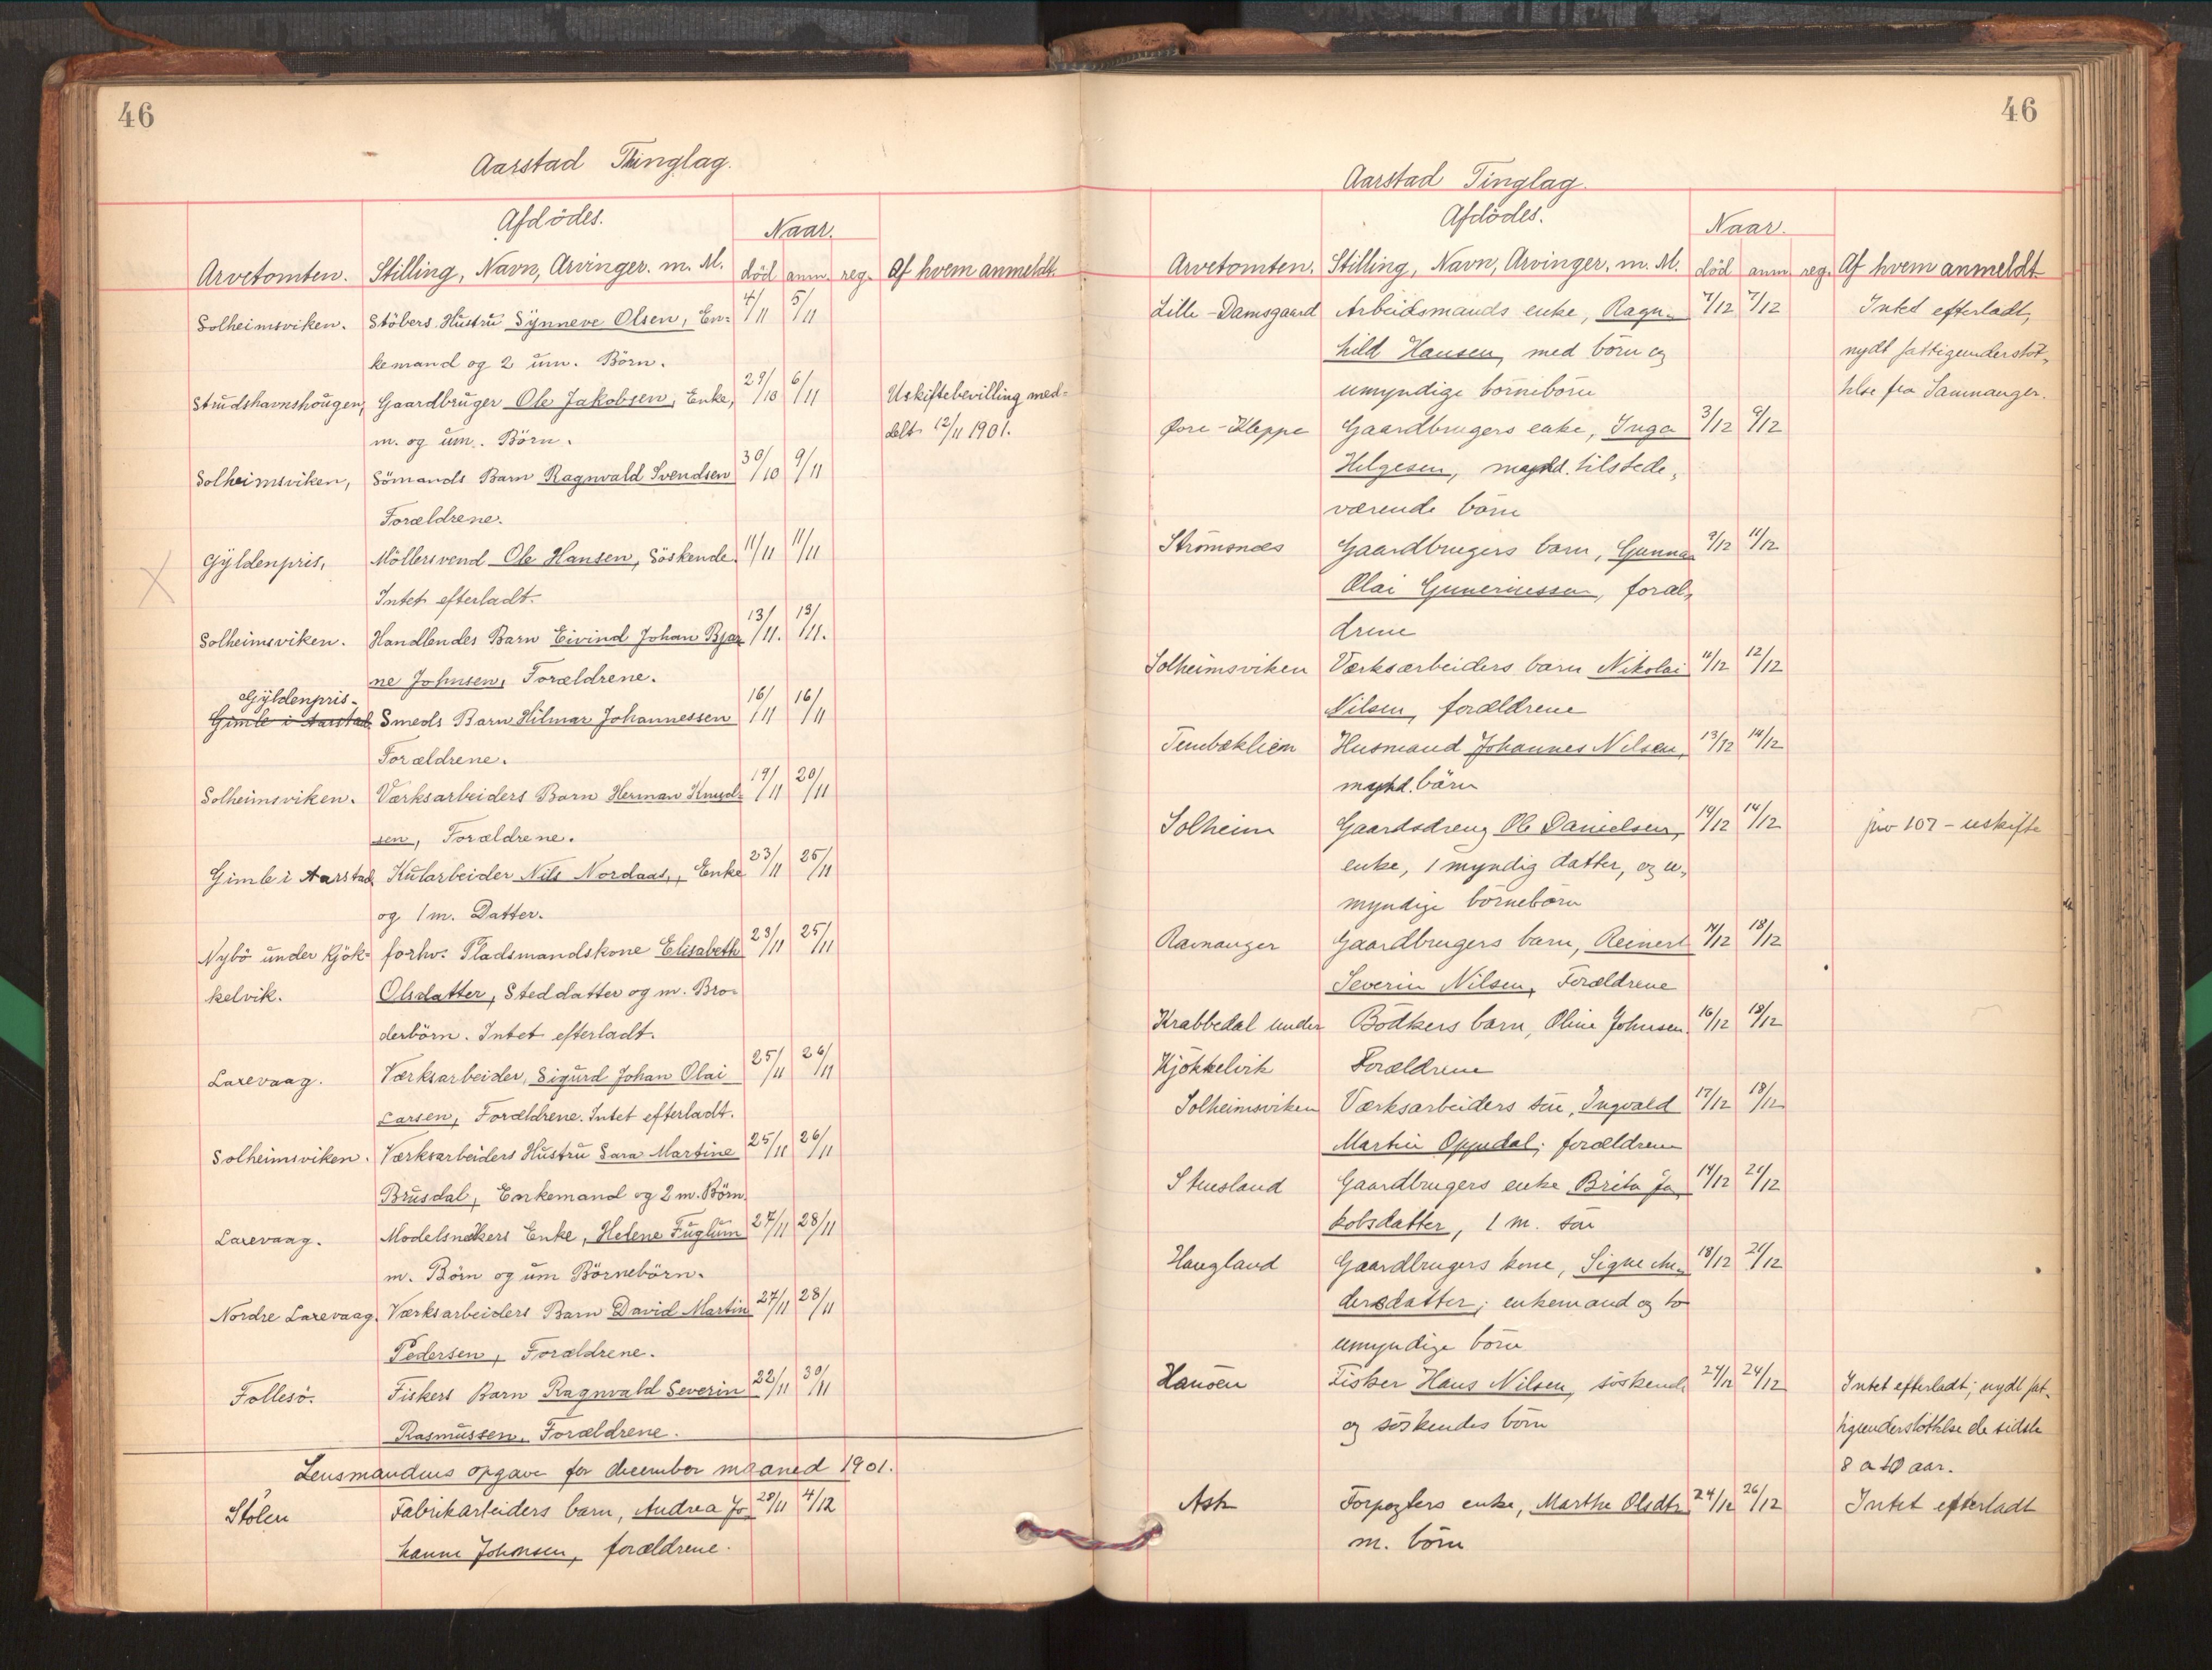 46
Aarstad Thinglag.
Afdödes.
Naar.
Arvetomten. Stilling, Navn, Arvinger. m. M. död anm. reg. Af hvem anmeldt.
Solheimsviken. Stöbers Hustru Synneve Olsen, En- 4/11 5/11
kemand og 2 um. Börn.
Strudshavnshougen, Gaardbruger Ole Jakobsen, Enke, 29/10 6/11 Uskiftebevilling med-
m. og um. Börn. delt 12/11 1901.
Solheimsviken, Sömands Barn Ragnvald Svendsen 30/10 9/11
Forældrene.
Gyldenpris, Möllersvend Ole Hansen, Söskende. 11/11 11/11
Intet efterladt.
Solheimsviken. Handlendes Barn Eivind Johan Bjar 13/11. 13/11.
ne Johnsen, Forældrene.
Gyldenpris-
Gimle i Aarstad Smeds Barn Hilmar Johannessen 16/11 16/11
Forældrene.
Solheimsviken. Værksarbeiders Barn Herman Knud- 19/11 20/11
sen, Forældrene.
Gimle i Aarstad Kularbeider Nils Nordaas, Enke 23/11 25/11
og 1 m. Datter.
Nybö under Kjök- forhv. Pladsmandskone Elisabeth 23/11 25/11
kelvik. Olsdatter, Steddatter og m. Bro-
derbörn. Intet efterladt.
Laxevaag. Værksarbeider, Sigurd Johan Olai 25/11 26/11
Larsen, Forældrene. Intet efterladt.
Solheimsviken. Værksarbeiders Hustru Sara Martine 25/11 26/11
Brusdal, Enkemand og 2 m. Börn.
Laxevaag. Modelsnekers Enke, Helene Fuglum 27/11 28/11
m. Börn og um Börnebörn.
Nordre Laxevaag. Værksarbeiders Barn David Martin 27/11 28/11
Pedersen, Forældrene.
Follesö. Fiskers Barn Ragnvald Severin 22/11 30/11
Rasmussen, Forældrene.
Lensmandens opgave for december maaned 1901.
Stölen Fabrikarbeiders barn, Andrea Jo- 28/11 4/12
hanne Johnsen, forældrene.
46
Aarstad Tinglag.
Afdödes.
Naar.
Arvetomten. Stilling, Navn, Arvinger. m. M. död anm reg. Af hvem anmeldt
Lille-Damsgaard Arbeidsmands enke, Ragn- 7/12 7/12 Intet efterladt,
hild Hansen, med börn og nydt fattigunderstöt-
umyndige börnebörn telse fra Samnanger.
Öore-Kleppe Gaardbrugers enke, Inga 3/12 9/12
Helgesen, mynd. tilstede-
værende börn
Strömsnæs Gaardbrugers barn, Gunnar 9/12 11/12
Olai Gunerinessen, foræl-
drene
Solheimsviken Værksarbeiders barn Nikolai 11/12 12/12
Nilsen, forældrene
Tennebæklien Husmand Johannes Nilsen, 13/12 14/12
mynd. börn
Solheim Gaardsdreng Ole Danielsen, 14/12 14/12 jnv 107 - uskifte
enke, 1 myndig datter, og u-
myndige börnebörn
Ramanger Gaardbrugers barn, Reinert 14/12 18/12
Severin Nilsen, Forældrene
Krabbedal under Bödkers barn, Oline Johnsen. 16/12 18/12
Kjökkelvik Forældrene
Solheimsviken Værksarbeiders sön, Ingvald 17/12 18/12
Martin Oppedal; forældrene
Stuesland Gaardbrugers enke Brita Ja- 14/12 21/12
kobsdatter, 1 m. sön
Haugland Gaardbrugers kone, Signe An- 18/12 21/12
dersdatter; enkemand og to
umyndige börn
Hanöen Fisker Hans Nilsen, söskende 24/12 24/12 Intet efterladt; nydt fat-
og söskendes börn tigunderstöttelse de sidste
8 a 10 aar.
Ask Forpagters enke, Marthe Olsdtr 24/12 26/12 Intet efterladt
m. börn